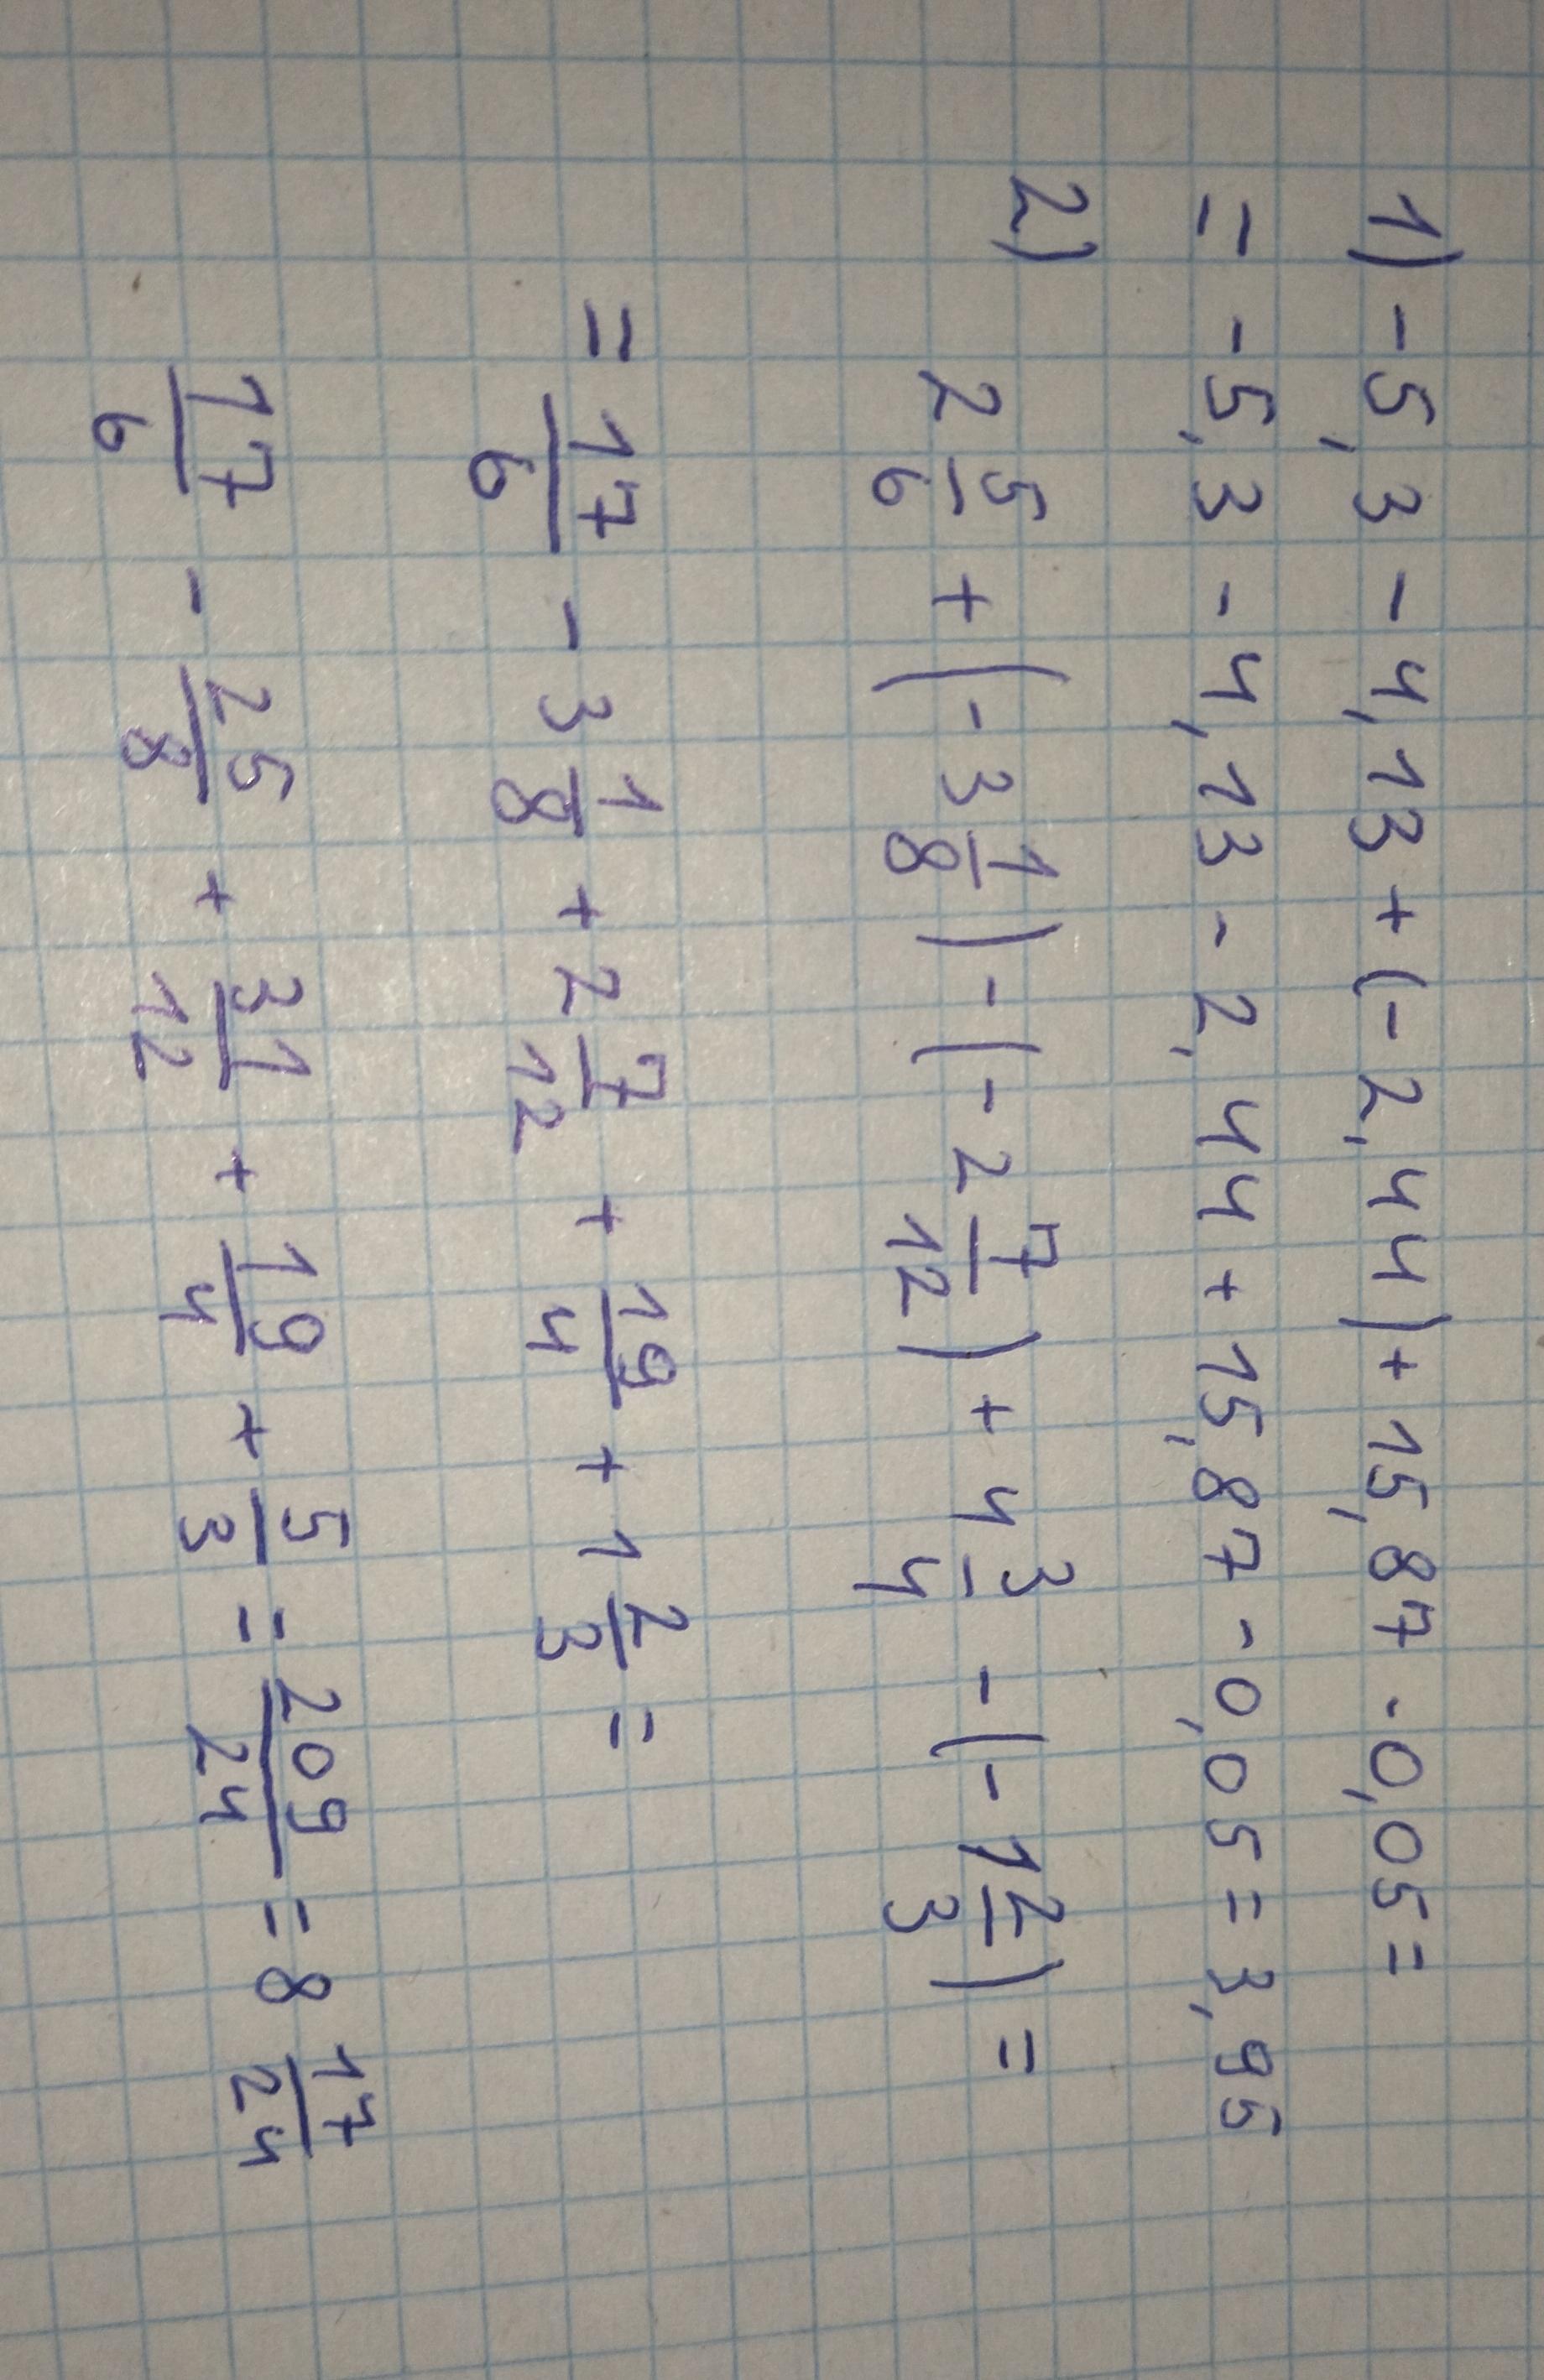 1) -5,3 - 4,13 + (-2,44) + 15,87 - 0,05 =
= -5,3 - 4,13 - 2,44 + 15,87 - 0,05 = 3,95
2) 2 5/6 + (-3 1/8) - (-2 7/12) + 4 3/4 - (-1 2/3) =
= 17/6 - 3 1/8 + 2 7/12 + 19/4 + 1 2/3 =
17/6 - 25/8 + 31/12 + 19/4 + 5/3 = 209/24 = 8 17/24